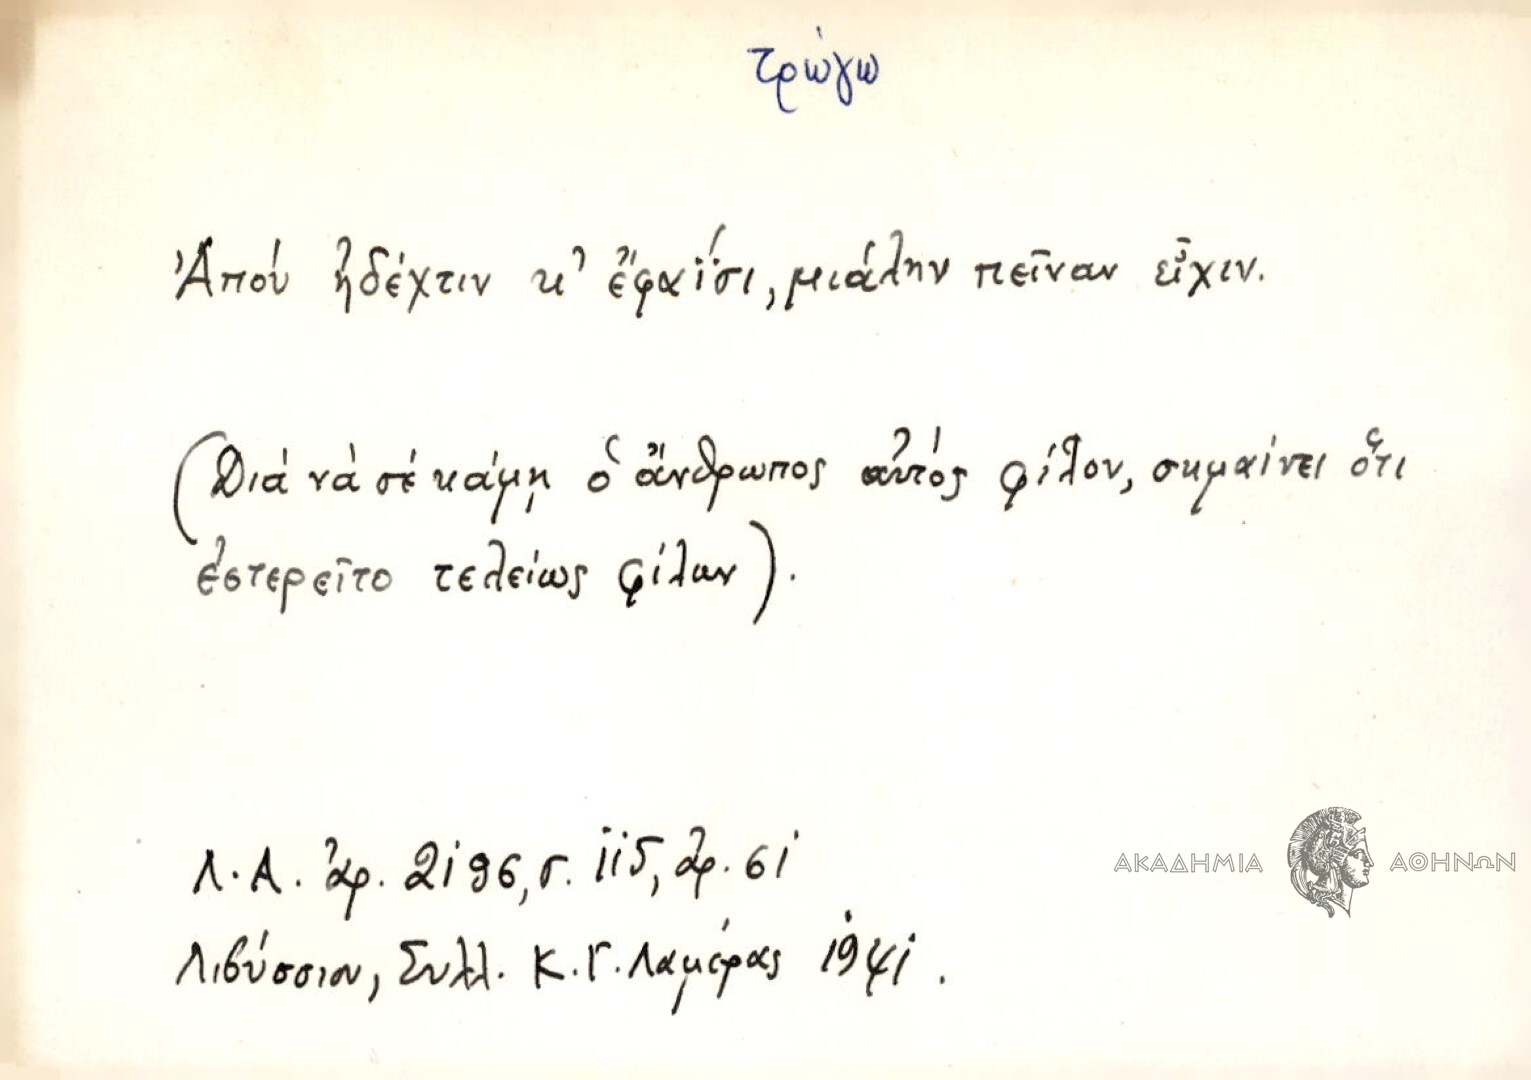 τρώγω
Ἀπού ἠδέχτιν κ' ἔφαϊσι, μιάλην πεῖναν εἶχιν.
(Διά νά σέ κάμῃ ὁ ἄνθρωπος αὐτός φίλον, σημαίνει ὅτι
ἐστερεῖτο τελείως φίλων).
Λ.Α. ἀρ. 2196, σ. 115, ἀρ. 61
Λιβύσσιον, Συλλ. Κ.Γ. Λαμέρας 1941.
ΑΚΑΔΗΜΙΑ ΑΘΗΝΩΝ